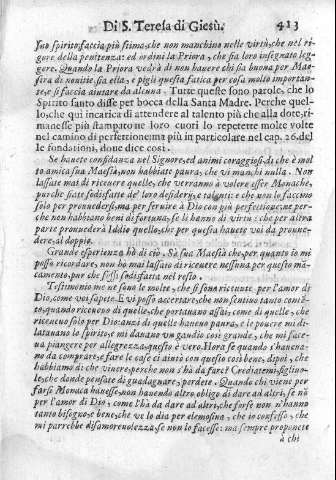 Di S. Teresa di Giesù. 413
suo spirito, faccia più stima, che non manchino nelle virtù, che nel ri-
gore della penitenza: ed ordini la Priora, che sia loro insegnato leg-
gere. Quando la Priora vedrà di non havere chi sia buona per Mae-
stra di novitie, sia ella; e pigli questa fatica per cosa molto importan-
te, e si faccia aiutare da alcuna. Tutte queste sono parole, che lo
Spirito santo disse per bocca della Santa Madre. Perche quel-
lo, che quì incarica di attendere al talento più che alla dote, ri-
manesse più stampato ne' loro cuori lo repetette molte volte
nel camino di perfettione, ma più in particolare nel cap. 26. del-
le fondationi, dove dice così.
Se havete confidanza nel Signore, ed animi coraggiosi, di che è mol-
to amica sua Maestà, non habbiate paura, che vi manchi nulla. Non
lassate mai di ricevere quelle, che verranno à volere esser Monache,
purche siate sodisfatte de' loro desiderij, e talenti: e che non lo faccino
solo per provedersi, ma per servire à Dio con più perfettione per-
che non habbiano beni di fortuna, se li hanno di virtù: che per altra
parte provederà Iddio quello, che per questa havete voi da provve-
dere, al doppio.
Grande esperienza hò di ciò. Sà sua Maestà che, per quanto io mi
posso ricordare, non hò mai lassato di ricevere nessuna per questo mã-
camento, pur che fossi sodisfatta nel resto.
Testimonio me ne sono le molte, che si sono ricevute per l'amor di
Dio, come voi sapete. E vi posso accertare, che non sentivo tanto contẽ-
to, quando ricevevo di quelle, che portavano assai, come di quelle, che
ricevevo solo per Dio: anzi di quelle haveva paura, e le povere mi di-
latavano lo spirito, e mi davano un gaudio così grande, che mi face-
va piangere per allegrezza, questo è vero. Hora se quando s'haveva-
no da comprare, e fare le case ci aiutò con questo così bene, dipoi, che
habbiamo di che vivere, perche non s'hà da fare? Credetemi, figliuo-
le, che donde pensate di guadagnare, perdete. Quando chi viene per
farsi Monaca havesse, non havendo altro obligo di dare ad altri, se nõ
per l'amor di Dio, come l'hà da dare ad altri, che forse non n'hanno
tanto bisogno, e bene, che ve lo dia per elemosina, che io confesso, che
mi parrebbe disamorevolezza, se non lo facesse: ma sempre proponete
à chi